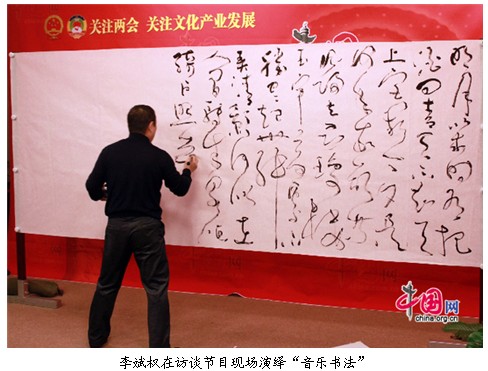 关注两会 关注文化产业发展
明月几时有把
酒问青天不知天
上宫阙今夕是
何年我欲乘
风归去又恐琼楼
玉宇高处不
胜寒起舞
弄清影何似在
人间转朱阁低
绮户照无
中国网
china.org.cn
李斌权在访谈节目现场演绎“音乐书法”